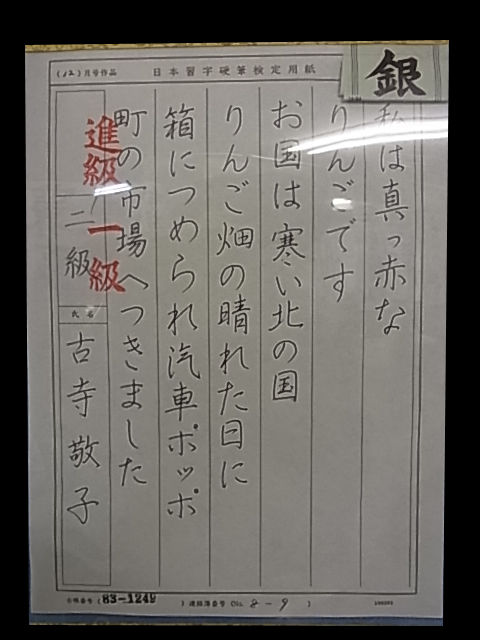 (12)月号作品
日本習字硬筆検定用紙
銀
私は真っ赤な
りんごです
お国は寒い北の国
りんご畑の晴れた日に
箱につめられ汽車ポッポ
町の市場へつきました
進級一級
二級
氏名
古寺敬子
83-1249
8-9